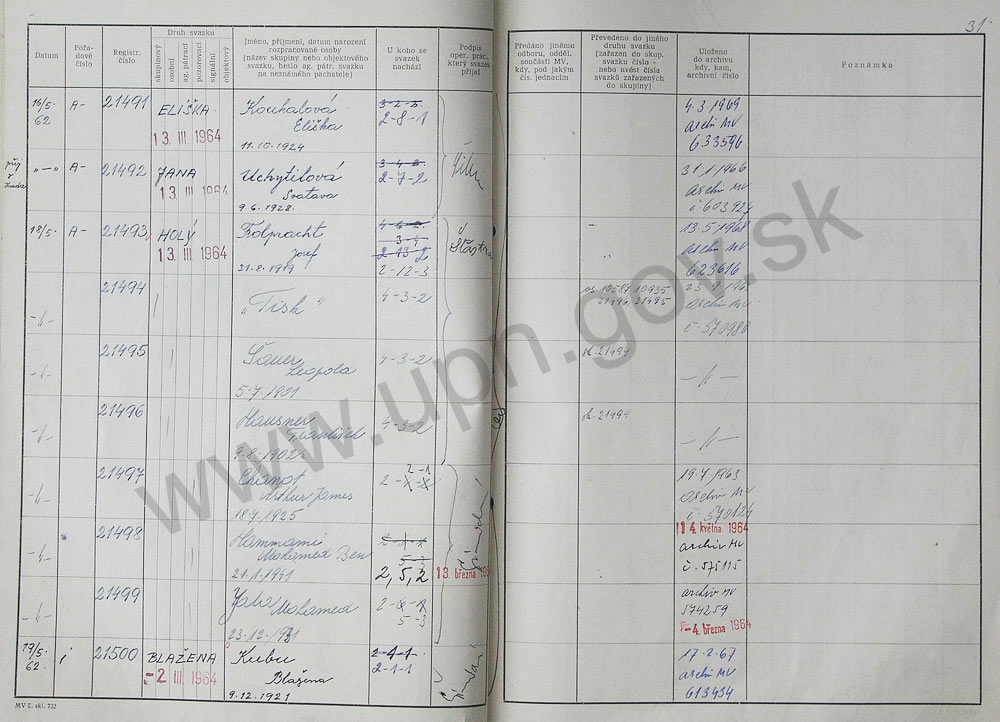 31
Datum
Pořa-
dové
číslo
Registr.
číslo
Druh svazku
skupinový
osobní
ag. pátrací
pozorovací
signální
objektový
Jméno, příjmení, datum narození
rozpracované osoby
(název skupiny nebo objektového
svazku, heslo ag. pátr. svazku
na neznámého pachatele)
U koho se
svazek
nachází
Podpis
oper. prac.,
který svazek
přijal
Předáno jinému
odboru, odděl.
součásti MV,
kdy, pod jakým
čís. jednacím
Převedeno do jiného
druhu svazku
(zařazen do skup.
svazku číslo -
nebo uvést čísla
svazků zařazených
do skupiny)
Uloženo
do archivu
kdy, kam,
archivní číslo
Poznámka
16/5.
62
A-
21491
ELIŠKA
13 III. 1964
Kouhalová
Eliška
11.10.1924
3-2-2
2-8-1
4.3.1969
Archiv MV
633596
A-
21492
JANA
13 III. 1964
Uchytilová
Svatava
9.6.1928
3-4-2
2-7-2
31.1.1966
Archiv MV
č 603927
18/5.
A-
21493
HOLÝ
13 III. 1964
Folpracht
Josef
31.8.1919
4-6-2
3-4
2-13-2
2-12-3
Šťastna
13.5.1968
Archiv MV
623616
21494
"Tish"
4-3-2
os. 10587, 10935
21496, 21495
Archiv MV
č. 570980
21495
Sauer
Leopola
5.7.1901
4-3-2
sk. 21494
21496
Hausner
František
9.8.1902
4-3-2
sk. 21494
21497
Arthur James
18.7.1925
2-1
2-X-X
19.7.1963
Archiv MV
č 570124
21498
Hammami
Mohamed Ben
21.1.1941
2-1-1
5-3
2, 5, 2
13. března 196
11 4. května 1964
archiv MV
č. 575115
21499
Mohamed
23.12.1931
5-3
archiv MV
574259
5-4. března 1964
19/5.
62.
i
21500
BLAŽENA
-2 III. 1964
Kubu
Blažena
9.12.1921
2-4-1
2-1-1
17.2.67
archiv MV
613434
MV č. skl. 732
www.upn.gov.sk